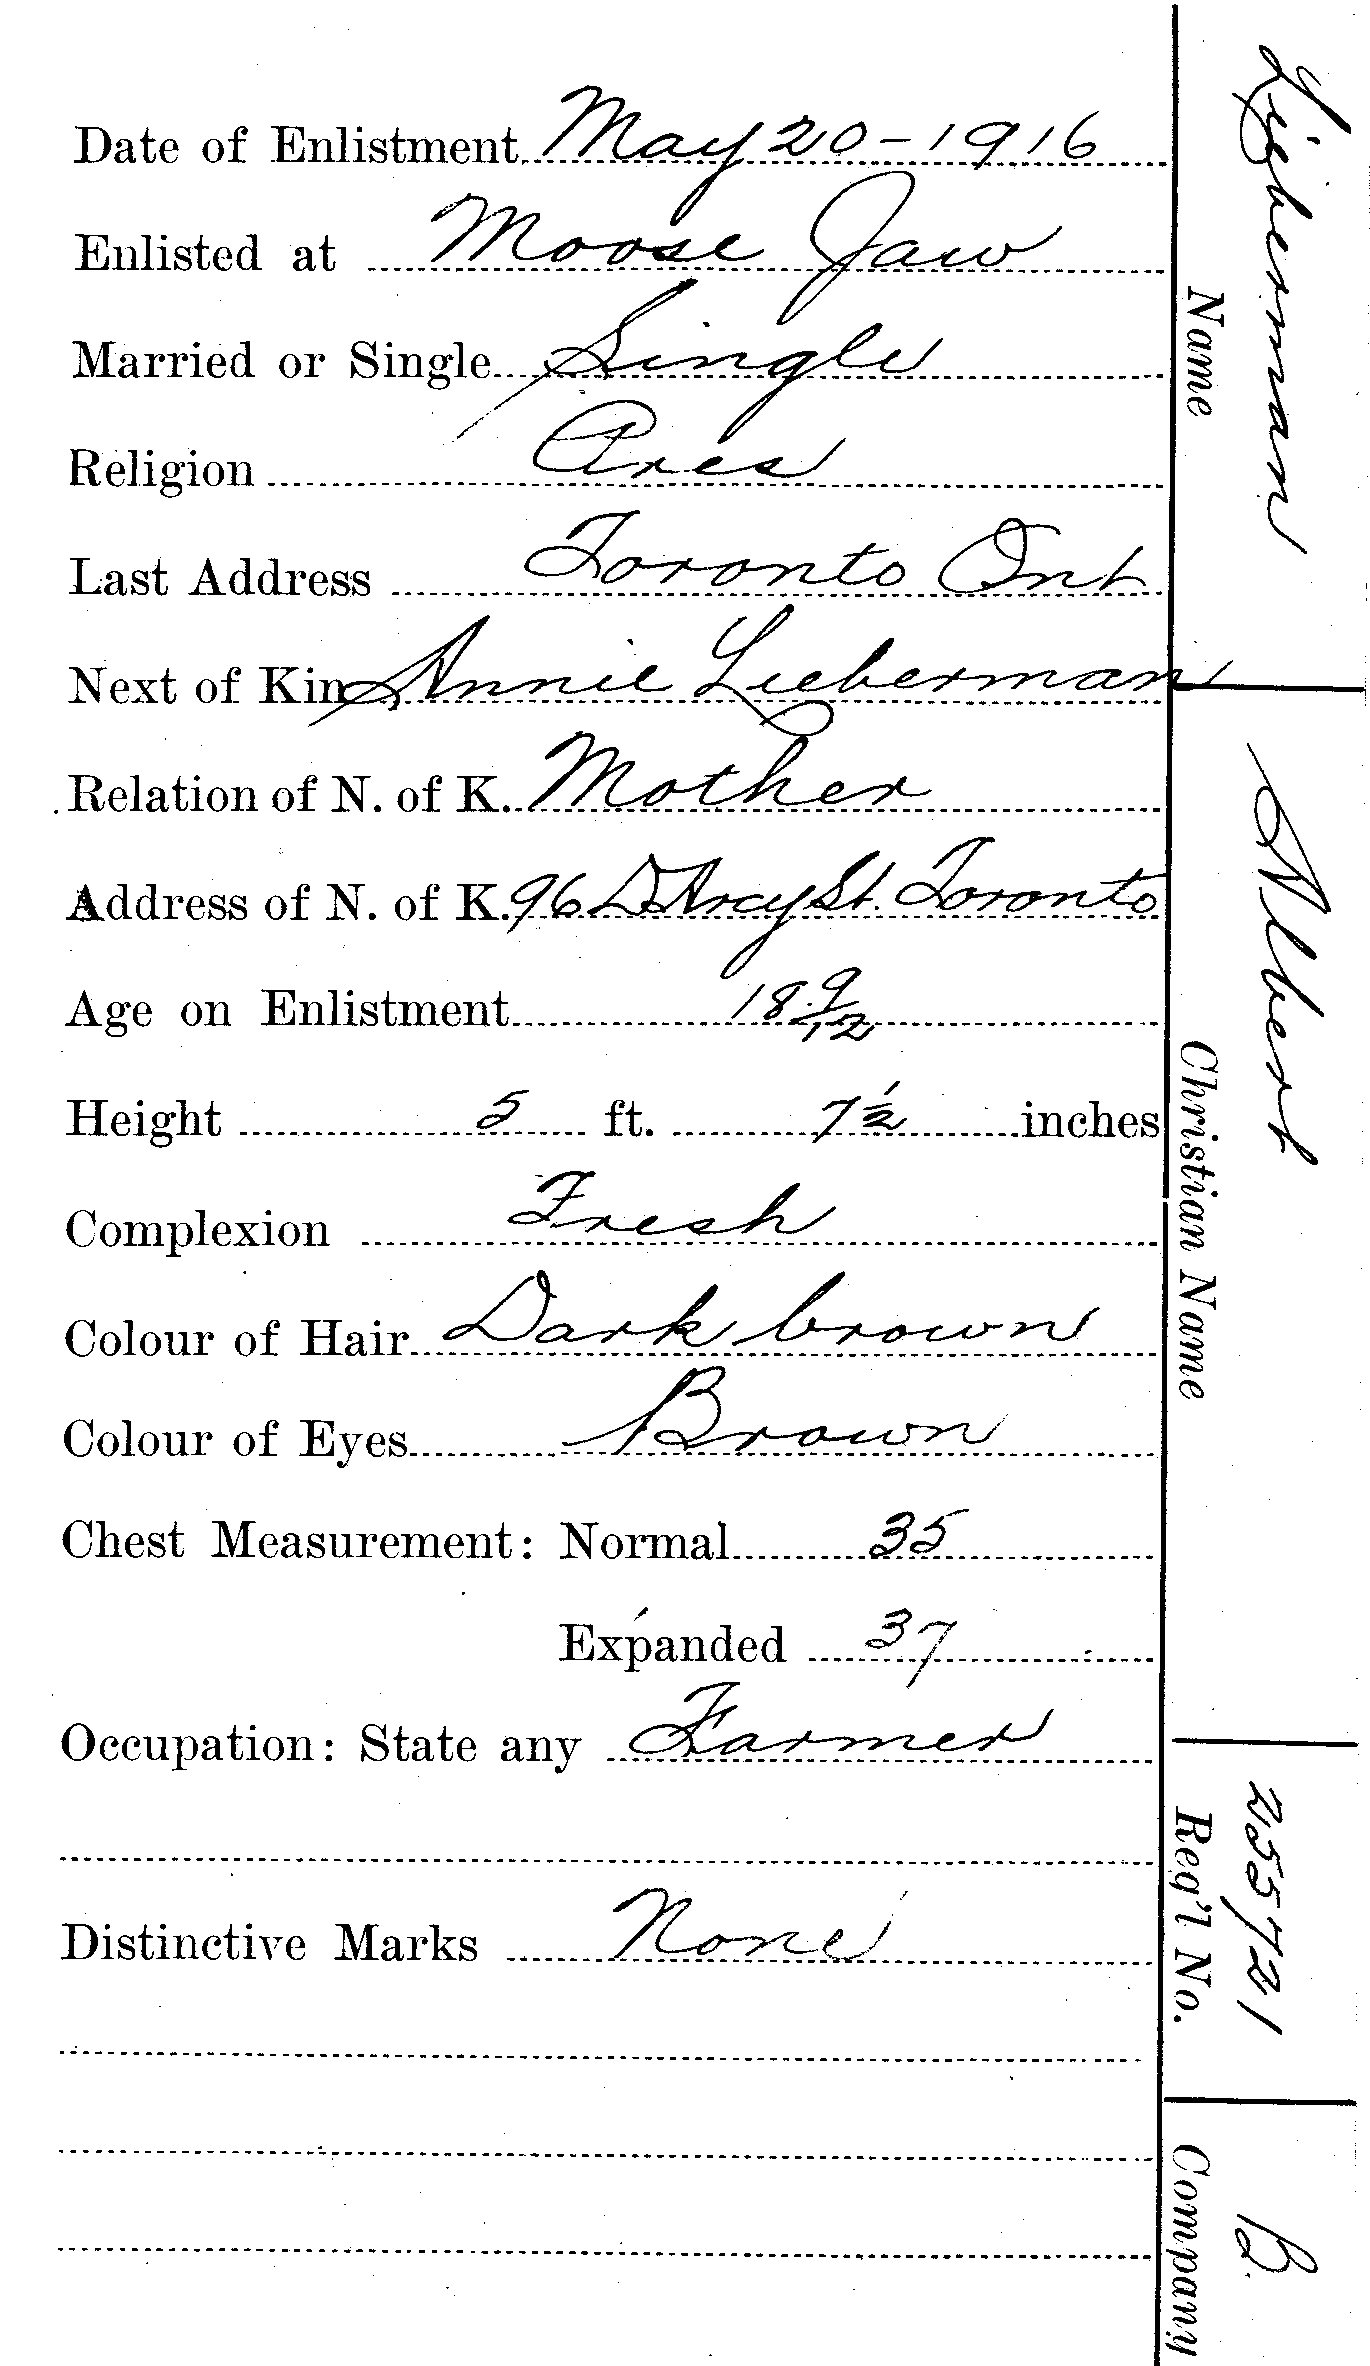 Date of Enlistment May 20-1916
Enlisted at Moose Jaw
Married or Single Single
Religion Pres
Last Address Toronto Ont
Next of Kin Annie Lieberman
Relation of N. of K. Mother
Address of N. of K. 96 D'Arcy St. Toronto
Age on Enlistment 18 9/12
Height 5 ft. 7 1/2 inches
Complexion Fresh
Colour of Hair Dark brown
Colour of Eyes Brown
Chest Measurement: Normal 35
Expanded 37
Occupation: State any Farmer
Distinctive Marks None
Lieberman
Name
Albert
Christian Name
255721
Reg'l No.
B.
Company